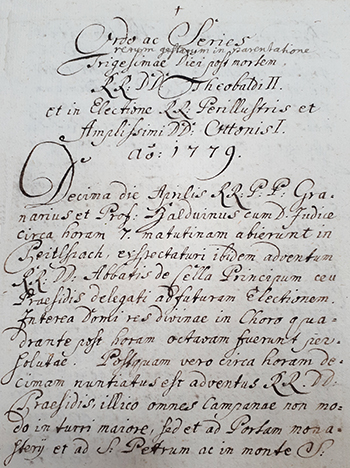 Ordo ac Series
rerum gestarum in praesentatione
Trigesimae Diei post mortem
RR. DD. Theobaldi II.
et in Electione RR. Perillustris et
Amplissimi DD: Ottonis I.
aõ: 1779.
Decima die Aprilis RR. P.P. Gra-
narius et Prof: Balduinus cum D. Judice
circa horam 7. matutinam abierunt in
exspectaturi ibidem adventum
RR. DD: Abbatis de Cella Principum ceu
Praesidis delegati ad futuram Electionem.
Interea Domi res divinae in Choro qua-
drante post horam octavam fuerunt per-
solutae. Postquam vero circa horam de-
cimam nuntiatus est adventus RR. DD:
Praesidis, illico omnes Campanae non mo-
do in turri maiore, sed et ad Portam mona-
sterij et ad S. Petrum ac in monte S.